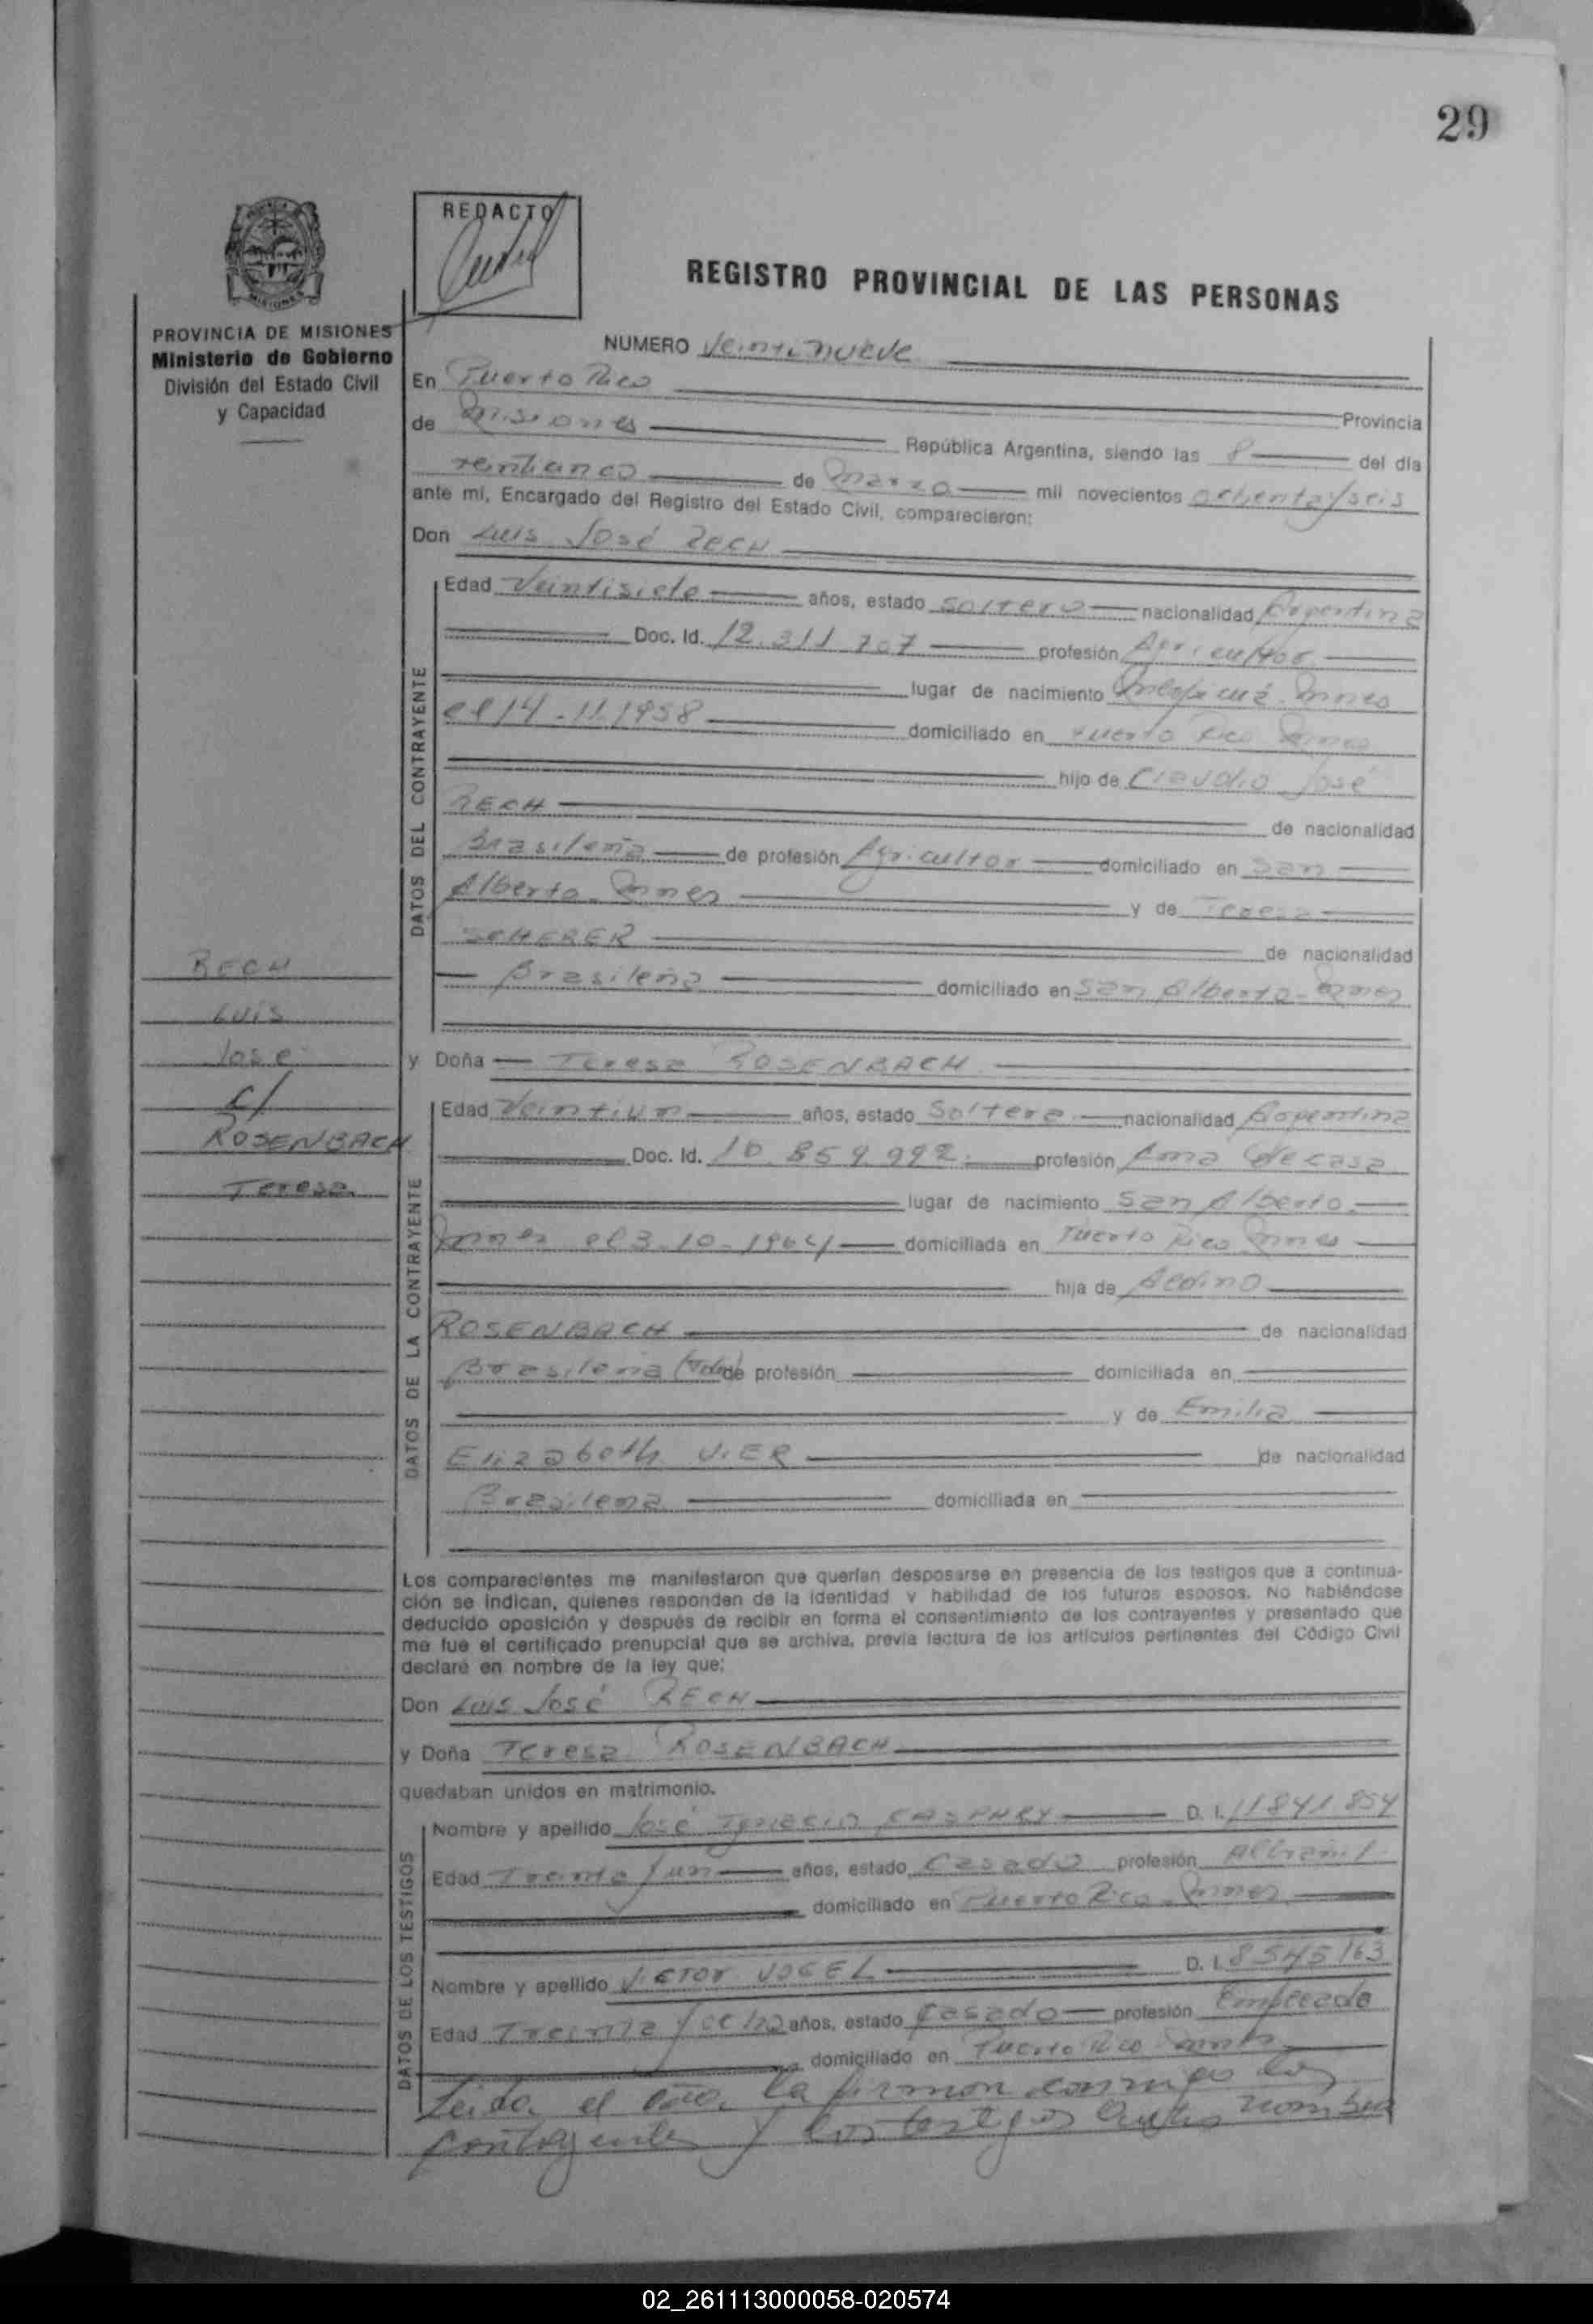 29
REDACTO
REGISTRO PROVINCIAL DE LAS PERSONAS
MISIONES
PROVINCIA DE MISIONES
Ministerio de Gobierno
División del Estado Civil
y Capacidad
NUMERO Veintinueve
En Puerto Rico
Provincia
de Misiones República Argentina, siendo las 8 del día
de Marzo mil novecientos ochenta y seis
ante mi, Encargado del Registro del Estado Civil, comparecieron:
Don Luis José RECH
DATOS DEL CONTRAYENTE
Edad Veintisiete años, estado soltero nacionalidad Argentina
Doc. Id. 12.311.707 profesión Agricultor
lugar de nacimiento
el 14.11.1958 domiciliado en Puerto Rico Mnes
hijo de Claudio José
RECH de nacionalidad
Brasileña de profesión Agricultor domiciliado en San
Alberto - Mnes y de Teresa
SCHERER de nacionalidad
Brasileña domiciliado en San Alberto - Mnes
RECH
LUIS
José
c/
ROSENBACH
Teresa
y Doña Teresa ROSENBACH
DATOS DE LA CONTRAYENTE
Edad Veintiun años, estado Soltera nacionalidad Argentina
Doc. Id. 10.859.992. profesión Ama de casa
lugar de nacimiento San Alberto.
Mnes el 3-10-1964 domiciliada en Puerto Rico Mnes
hija de Aldino
ROSENBACH de nacionalidad
Brasileña de profesión domiciliada en
y de Emilia
Elizabeth VIER de nacionalidad
Brasilena domiciliada en
Los comparecientes me manifestaron que querían desposarse en presencia de los testigos que a continua-
ción se indican, quienes responden de la identidad y habilidad de los futuros esposos. No habiéndose
deducido oposición y después de recibir en forma el consentimiento de los contrayentes y presentado que
me fue el certificado prenupcial que se archiva, previa lectura de los artículos pertinentes del Código Civil
declaré en nombre de la ley que:
Don Luis José RECH
y Doña Teresa ROSENBACH
quedaban unidos en matrimonio.
DATOS DE LOS TESTIGOS
Nombre y apellido José Ignacio CASPARY D. I. 11841854
Edad Treinta y un años, estado Casado profesión Albañil
domiciliado en Puerto Rico - Mnes
Nombre y apellido VICTOR VOGEL D. I. 8545163
Edad Treinta y ocho años, estado Casado profesión Empleado
domiciliado en Puerto Rico Mnes
Leida el acta, la firman conmigo los
contrayentes y los testigos antes nombra
02_261113000058-020574